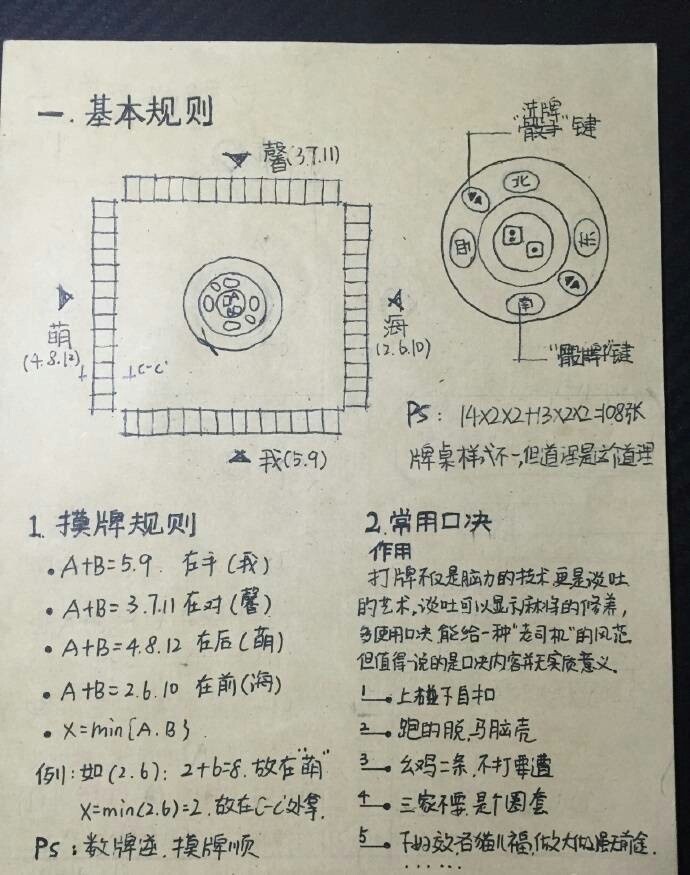 一.基本规则
馨(3.7.11)
萌
(4.8.12)
C-C'
海
(2.6.10)
我(5.9)
洗牌
"骰子"键
北
西
东
南
"骰牌"键
PS: 14×2×2+13×2×2=108张
牌桌样式不一,但道理是这个道理
1.摸牌规则
• A+B=5.9. 在手(我)
• A+B=3.7.11 在对(馨)
• A+B=4.8.12 在后(萌)
• A+B=2.6.10 在前(海)
• X=min{A.B}
例1:如(2.6): 2+6=8.放在"萌"
X=min(2.6)=2.放在C-C'处拿.
PS:数牌逆.摸牌顺
2.常用口决
作用
打牌不仅是脑力的技术,更是谈吐
的艺术,谈吐可以显示麻将的修养,
多使用口决能给一种"老司机"的风范
但值得一说的是口决内容并无实质意义.
1—.上碰下自扣
2—.跑的脱,马脑壳
3—.幺鸡二条,不打要遭
4—.三家不要,是个圈套
5—.
......